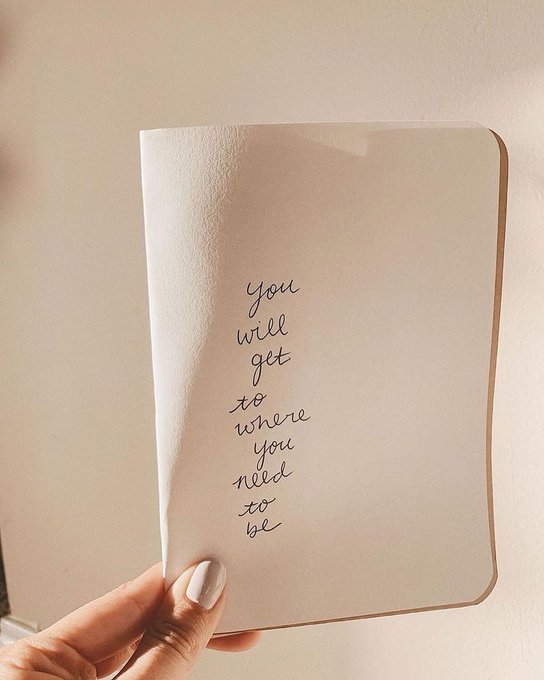 you
will
get
to
where
you
need
to
be